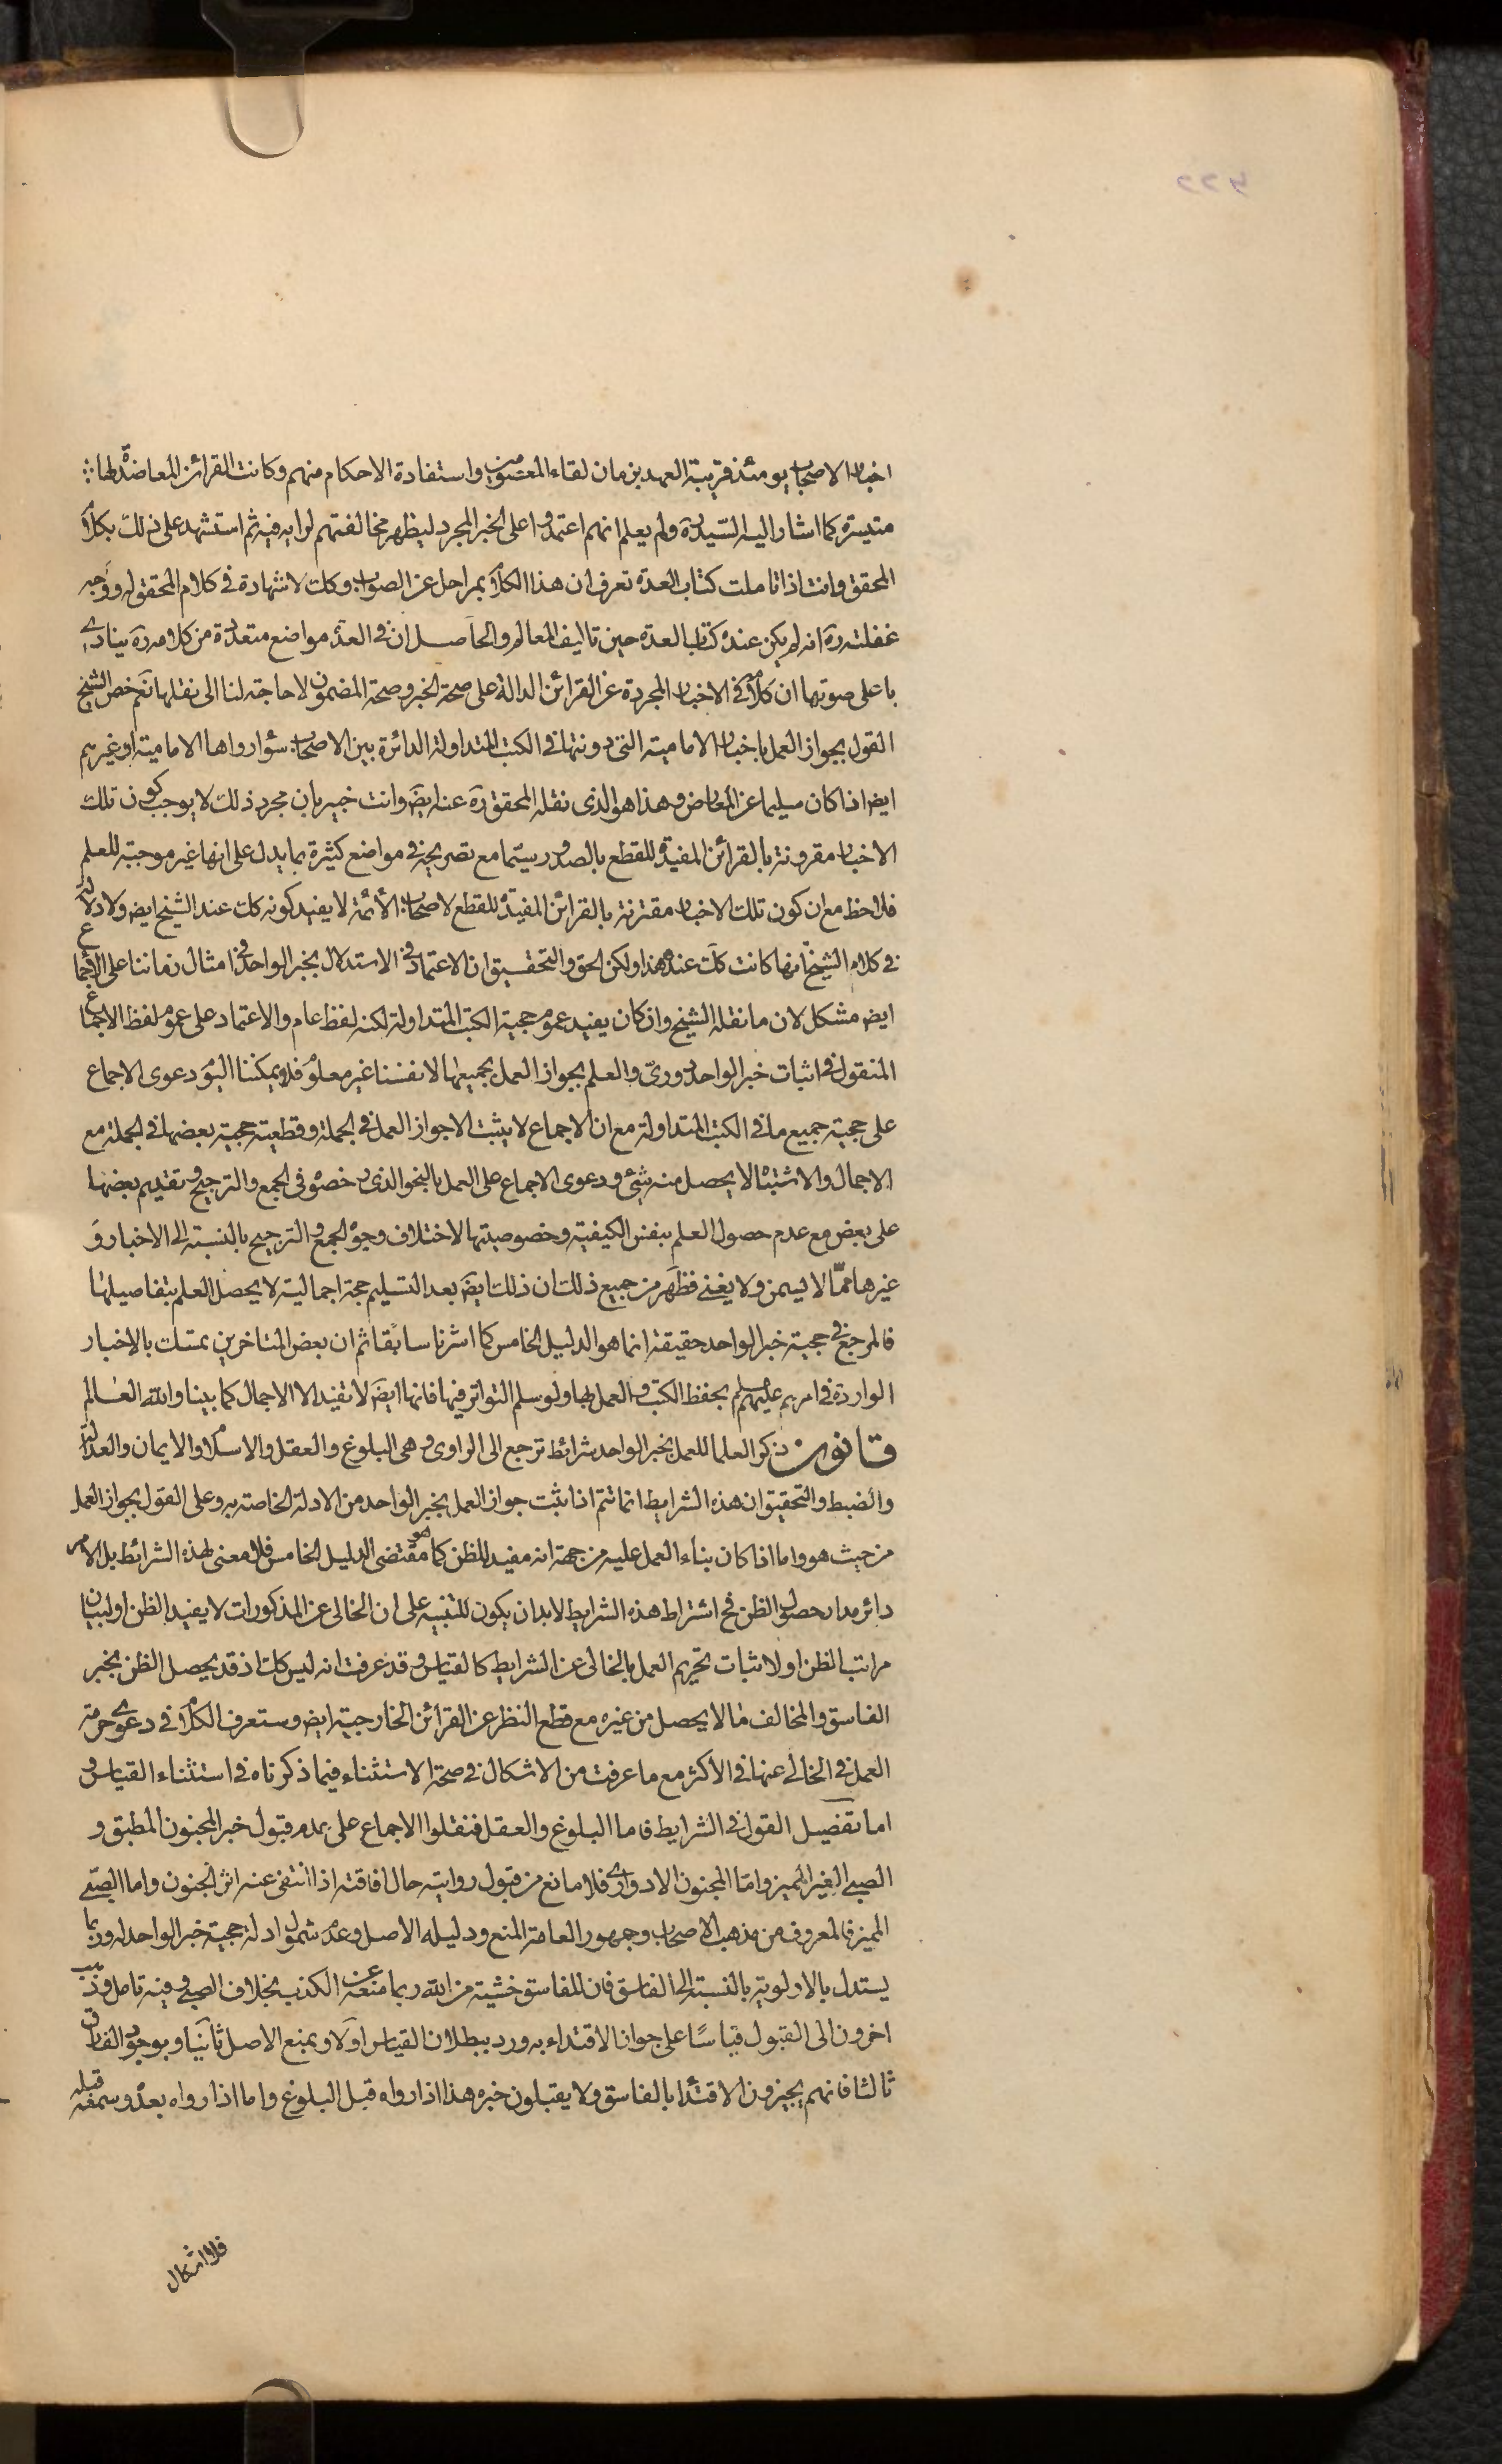 ۴۲۲
اخبار الاصحاب يومئذ قريبة العهد بزمان لقاء المعصومين واستفادة الاحكام منهم وكانت القرائن المعاضدة لها
متيسرة كما اشار اليه السيد ره ولم يعلم انهم اعتمدوا على الخبر المجرد ليظهر مخالفتهم لرايه فيه ثم استشهد على ذلك بكلام
المحقق وانت اذا تاملت كتاب العدة تعرف ان هذا الكلام بمراحل عن الصواب وكك لا شهادة في كلام المحقق له ووجه
غفلته ره انه لم يكن عنده كتاب العدة حين تاليف المعالم والحاصل ان في العدة مواضع متعددة من كلامه ره ينادى
باعلى صوتها ان كلامه في الاخبار المجردة عن القرائن الدالة على صحة الخبر وصحة المضمون لا حاجة لنا الى نقلها نعم خص الشيخ
القول بجواز العمل باخبار الامامية التى دونتها في الكتب المتداولة الدائرة بين الاصحاب سواء رواها الامامية او غيرهم
ايض اذا كان سليما عن المعارض وهذا هو الذى نقله المحقق ره عنه ايض وانت خبير بان مجرد ذلك لا يوجب كون تلك
الاخبار مقرونة بالقرائن المفيدة للقطع بالصدور سيما مع تصريحه في مواضع كثيرة بما يدل على انها غير موجبة للعلم
فلاحظ مع ان كون تلك الاخبار مقترنة بالقرائن المفيدة للقطع لاصحاب الأئمة لا يفيد كونه كك عند الشيخ ايض ولا دلالة
في كلام الشيخ انها كانت كك عنده هذا ولكن الحق والتحقيق ان الاعتماد في الاستدلال بخبر الواحد في امثال زماننا على الاجماع
ايض مشكل لان ما نقله الشيخ وان كان يفيد عموم حجية الكتب المتداولة لكنه لفظ عام والاعتماد على عموم لفظ الاجماع
المنقول في اثبات خبر الواحد دورى والعلم بجواز العمل بجميعها لانفسنا غير معلوم فلا يمكننا اليوم دعوى الاجماع
على حجية جميع ما في الكتب المتداولة مع ان الاجماع لا يثبت الا جواز العمل في الجملة وقطعية حجية بعضها في الجملة مع
الاجمال والاشتباه لا يحصل منه شئ ودعوى الاجماع على العمل بالنحو الذى رخصوه في الجمع والترجيح وتقديم بعضها
على بعض مع عدم حصول العلم بنفس الكيفية وخصوصيتها لاختلاف وجوه الجمع والترجيح بالنسبة الى الاخبار و
غيرها مما لا يسمن ولا يغنى فظهر من جميع ذلك ان ذلك ايض بعد التسليم حجة اجمالية لا يحصل العلم بتفاصيلها
فالمرجع في حجية خبر الواحد حقيقة انما هو الدليل الخامس كما اشرنا سابقا ثم ان بعض المتاخرين تمسك بالاخبار
الواردة في امرهم عليهم بحفظ الكتب والعمل بها ولو سلم التواتر فيها فانها ايض لا تفيد الا الاجمال كما بينا والله العالم
قانون ذكر العلما للعمل بخبر الواحد شرائط ترجع الى الراوى وهى البلوغ والعقل والاسلام والايمان والعدالة
والضبط والتحقيق ان هذه الشرايط انما تتم اذا ثبت جواز العمل بخبر الواحد من الادلة الخاصة به وعلى القول بجواز العمل
من حيث هو واما اذا كان بناء العمل عليه من جهة انه مفيد للظن كما هو مقتضى الدليل الخامس فلا معنى لهذه الشرائط بل الامر
دائر مدار حصول الظن فح اشتراط هذه الشرايط لابد ان يكون للتنبيه على ان الخالى عن المذكورات لا يفيد الظن او لبيان
مراتب الظن او لاثبات تحريم العمل بالخالى عن الشرايط كالقياس وقد عرفت انه ليس كك اذ قد يحصل الظن بخبر
الفاسق والمخالف ما لا يحصل من غيره مع قطع النظر عن القرائن الخارجية ايض وستعرف الكلام في دعوى حرمة
العمل في الخالى عنها في الاكثر مع ما عرفت من الاشكال في صحة الاستثناء فيما ذكرناه في استثناء القياس و
اما تفصيل القول في الشرايط فاما البلوغ والعقل فنقلوا الاجماع على عدم قبول خبر المجنون المطبق و
الصبى الغير المميز واما المجنون الادوارى فلا مانع من قبول روايته حال افاقته اذا انتفى عنه اثر الجنون واما الصبى
المميز فالمعروف من مذهب الاصحاب وجمهور العامة المنع ودليله الاصل وعدم شمول ادلة حجية خبر الواحد له وربما
يستدل بالاولوية بالنسبة الى الفاسق فان للفاسق خشية من الله ربما منعته عن الكذب بخلاف الصبى وفيه تامل وذهب
اخرون الى القبول قياسًا على جواز الاقتداء به ورد ببطلان القياس اولا وبمنع الاصل ثانيا وبوجود الفارق
ثالثا فانهم يجيزون الاقتداء بالفاسق ولا يقبلون خبره هذا اذا رواه قبل البلوغ واما اذا رواه بعده وسمعه قبله
فلا اشكال